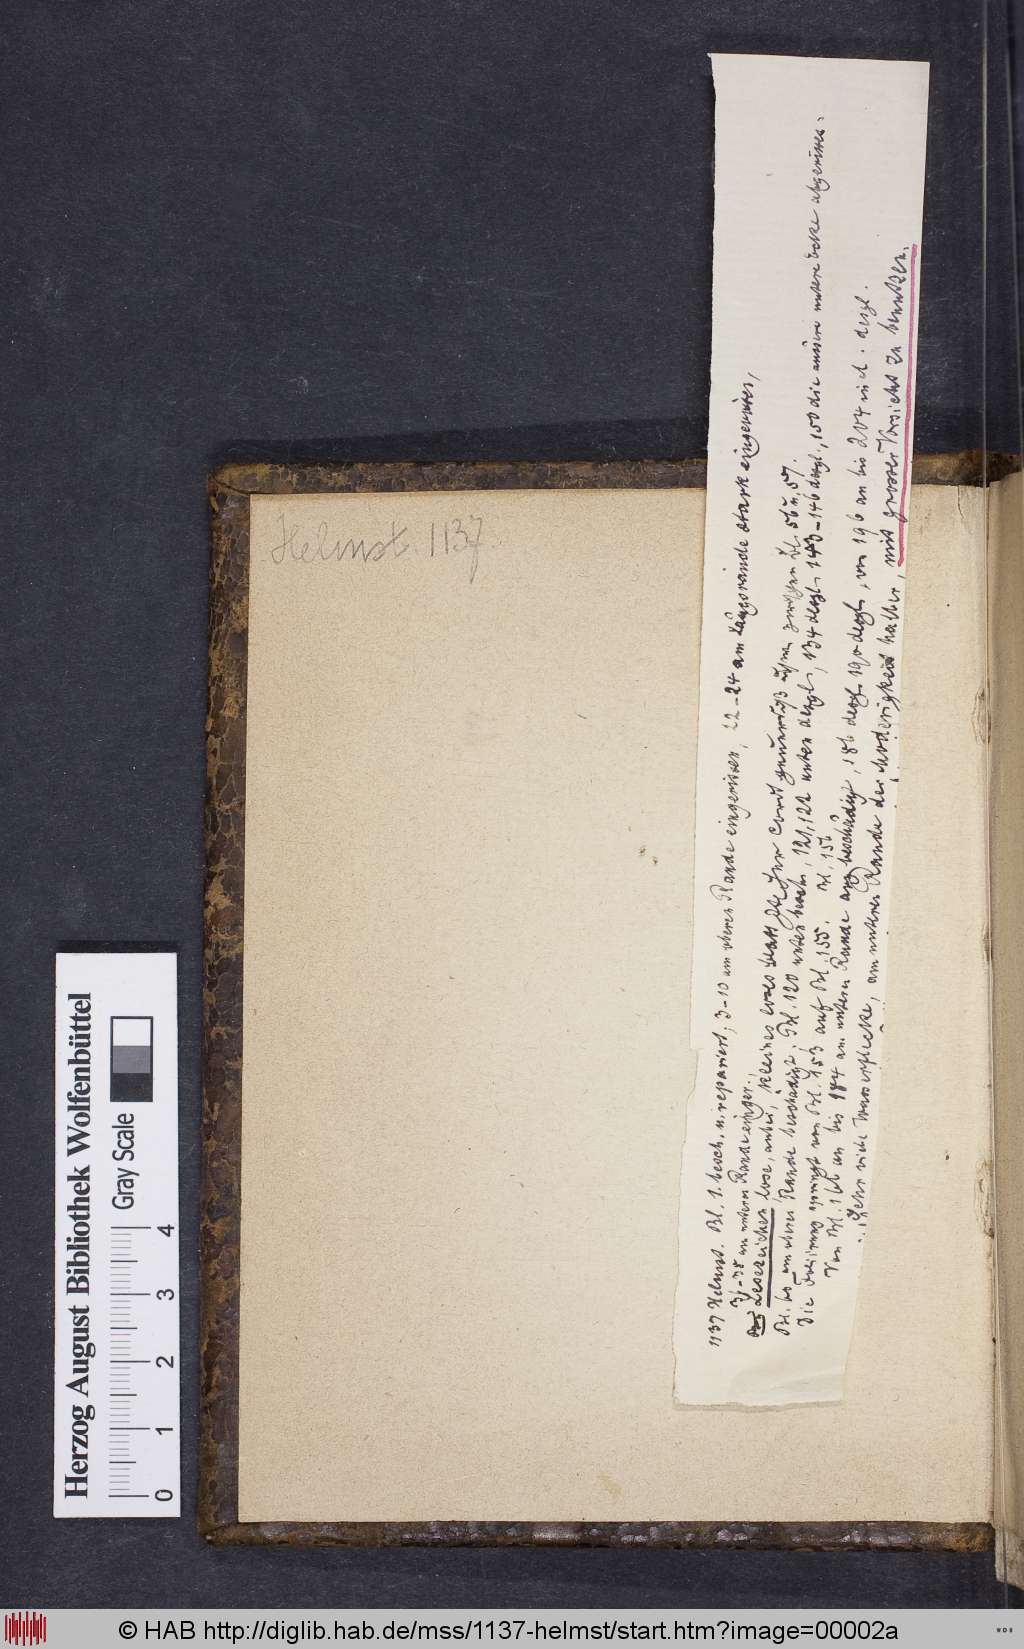 Helmst. 1137.
1137 Helmst. Bl. 1. besch. u. repariert, 3-10 am oberen Rande eingerissen, 22-24 am Längsrande stark eingerissen,
31-38 am unteren Rande einger.
Lesezeichen lose, anbei, kleines loses Blatt zwischen Bl. 56 u. 57.
Bl. 60 am oberen Rande beschädigt, Bl. 120 unten besch., 121, 122 unten desgl., 134 desgl. 143-146 desgl., 150 die äussere untere Ecke abgerissen.
Die Foliirung springt von Bl. 153 auf Bl. 155. Bl. 156
Von Bl. 166 an bis 184 am unteren Rande arg beschädigt, 186 desgl. 190 desgl., von 196 an bis 204 incl. desgl.
Sehr viele Wasserflecke, am unteren Rande der Moderigkeit halber, mit grosser Vorsicht zu benutzen.
Herzog August Bibliothek Wolfenbüttel
Gray Scale
0 1 2 3 4
© HAB http://diglib.hab.de/mss/1137-helmst/start.htm?image=00002a